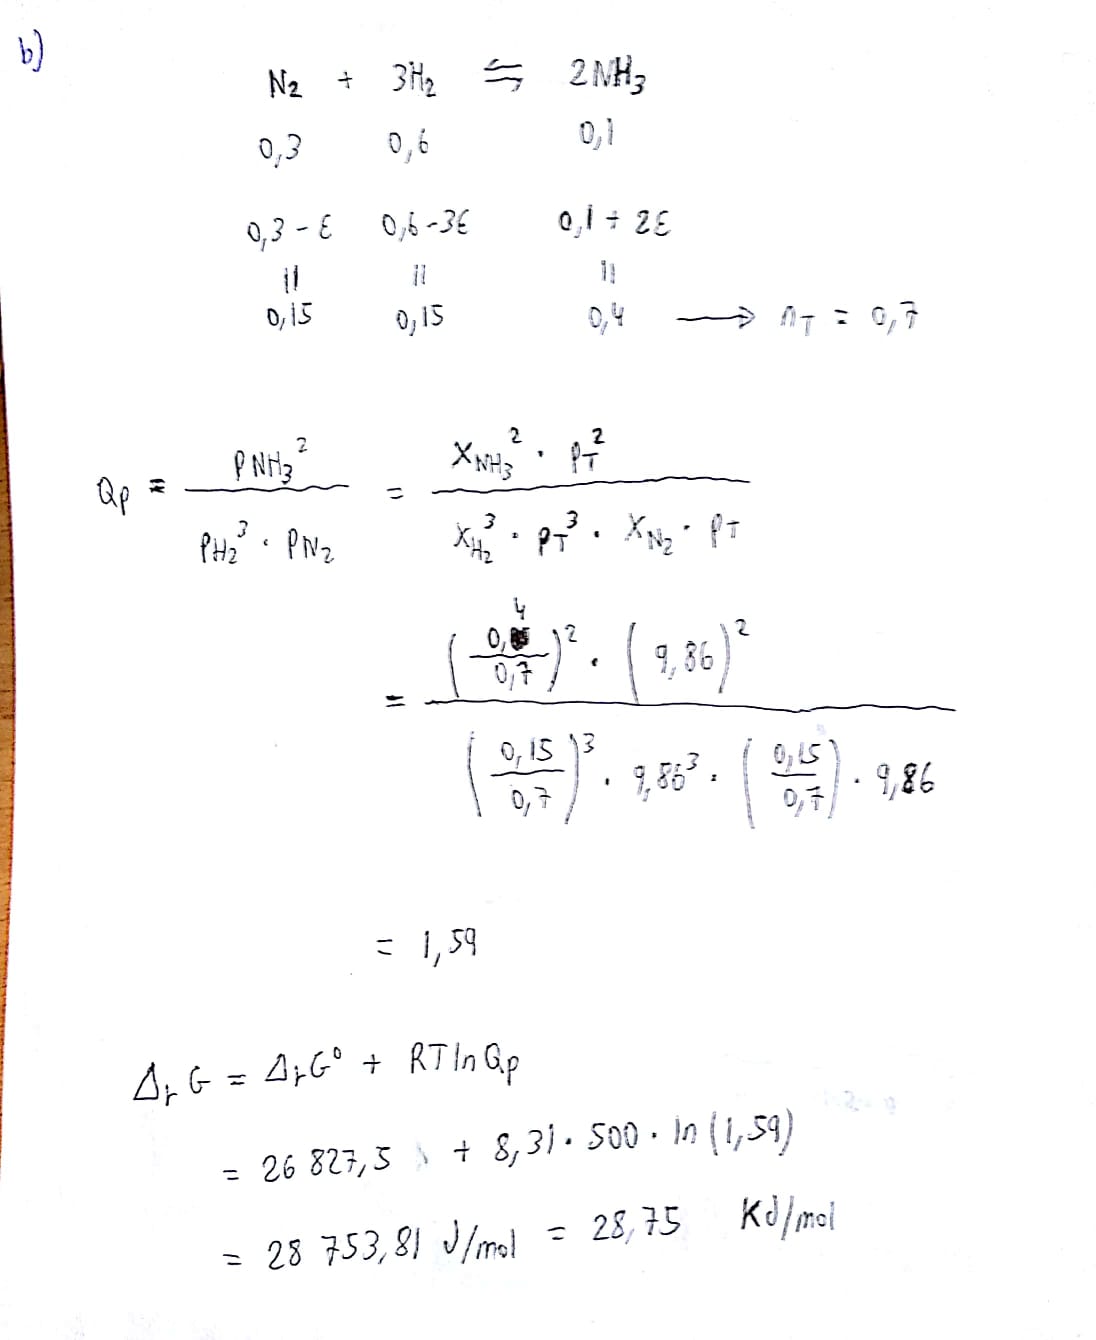 b)
N₂ + 3H₂ ⇆ 2NH₃
0,3 0,6 0,1
0,3 - ε 0,6 - 3ε 0,1 + 2ε
|| || ||
0,15 0,15 0,4 ⟶ nT = 0,7
Qp = PNH₃² / PH₂³ · PN₂ = XNH₃² · PT² / XH₂³ · PT³ · XN₂ · PT
= (0,4/0,7)² · (9,86)² / (0,15/0,7)³ · 9,86³ · (0,15/0,7) · 9,86
= 1,59
ΔrG = ΔrG° + RT ln Qp
= 26 827,5 + 8,31 · 500 · ln (1,59)
= 28 753,81 J/mol = 28,75 KJ/mol